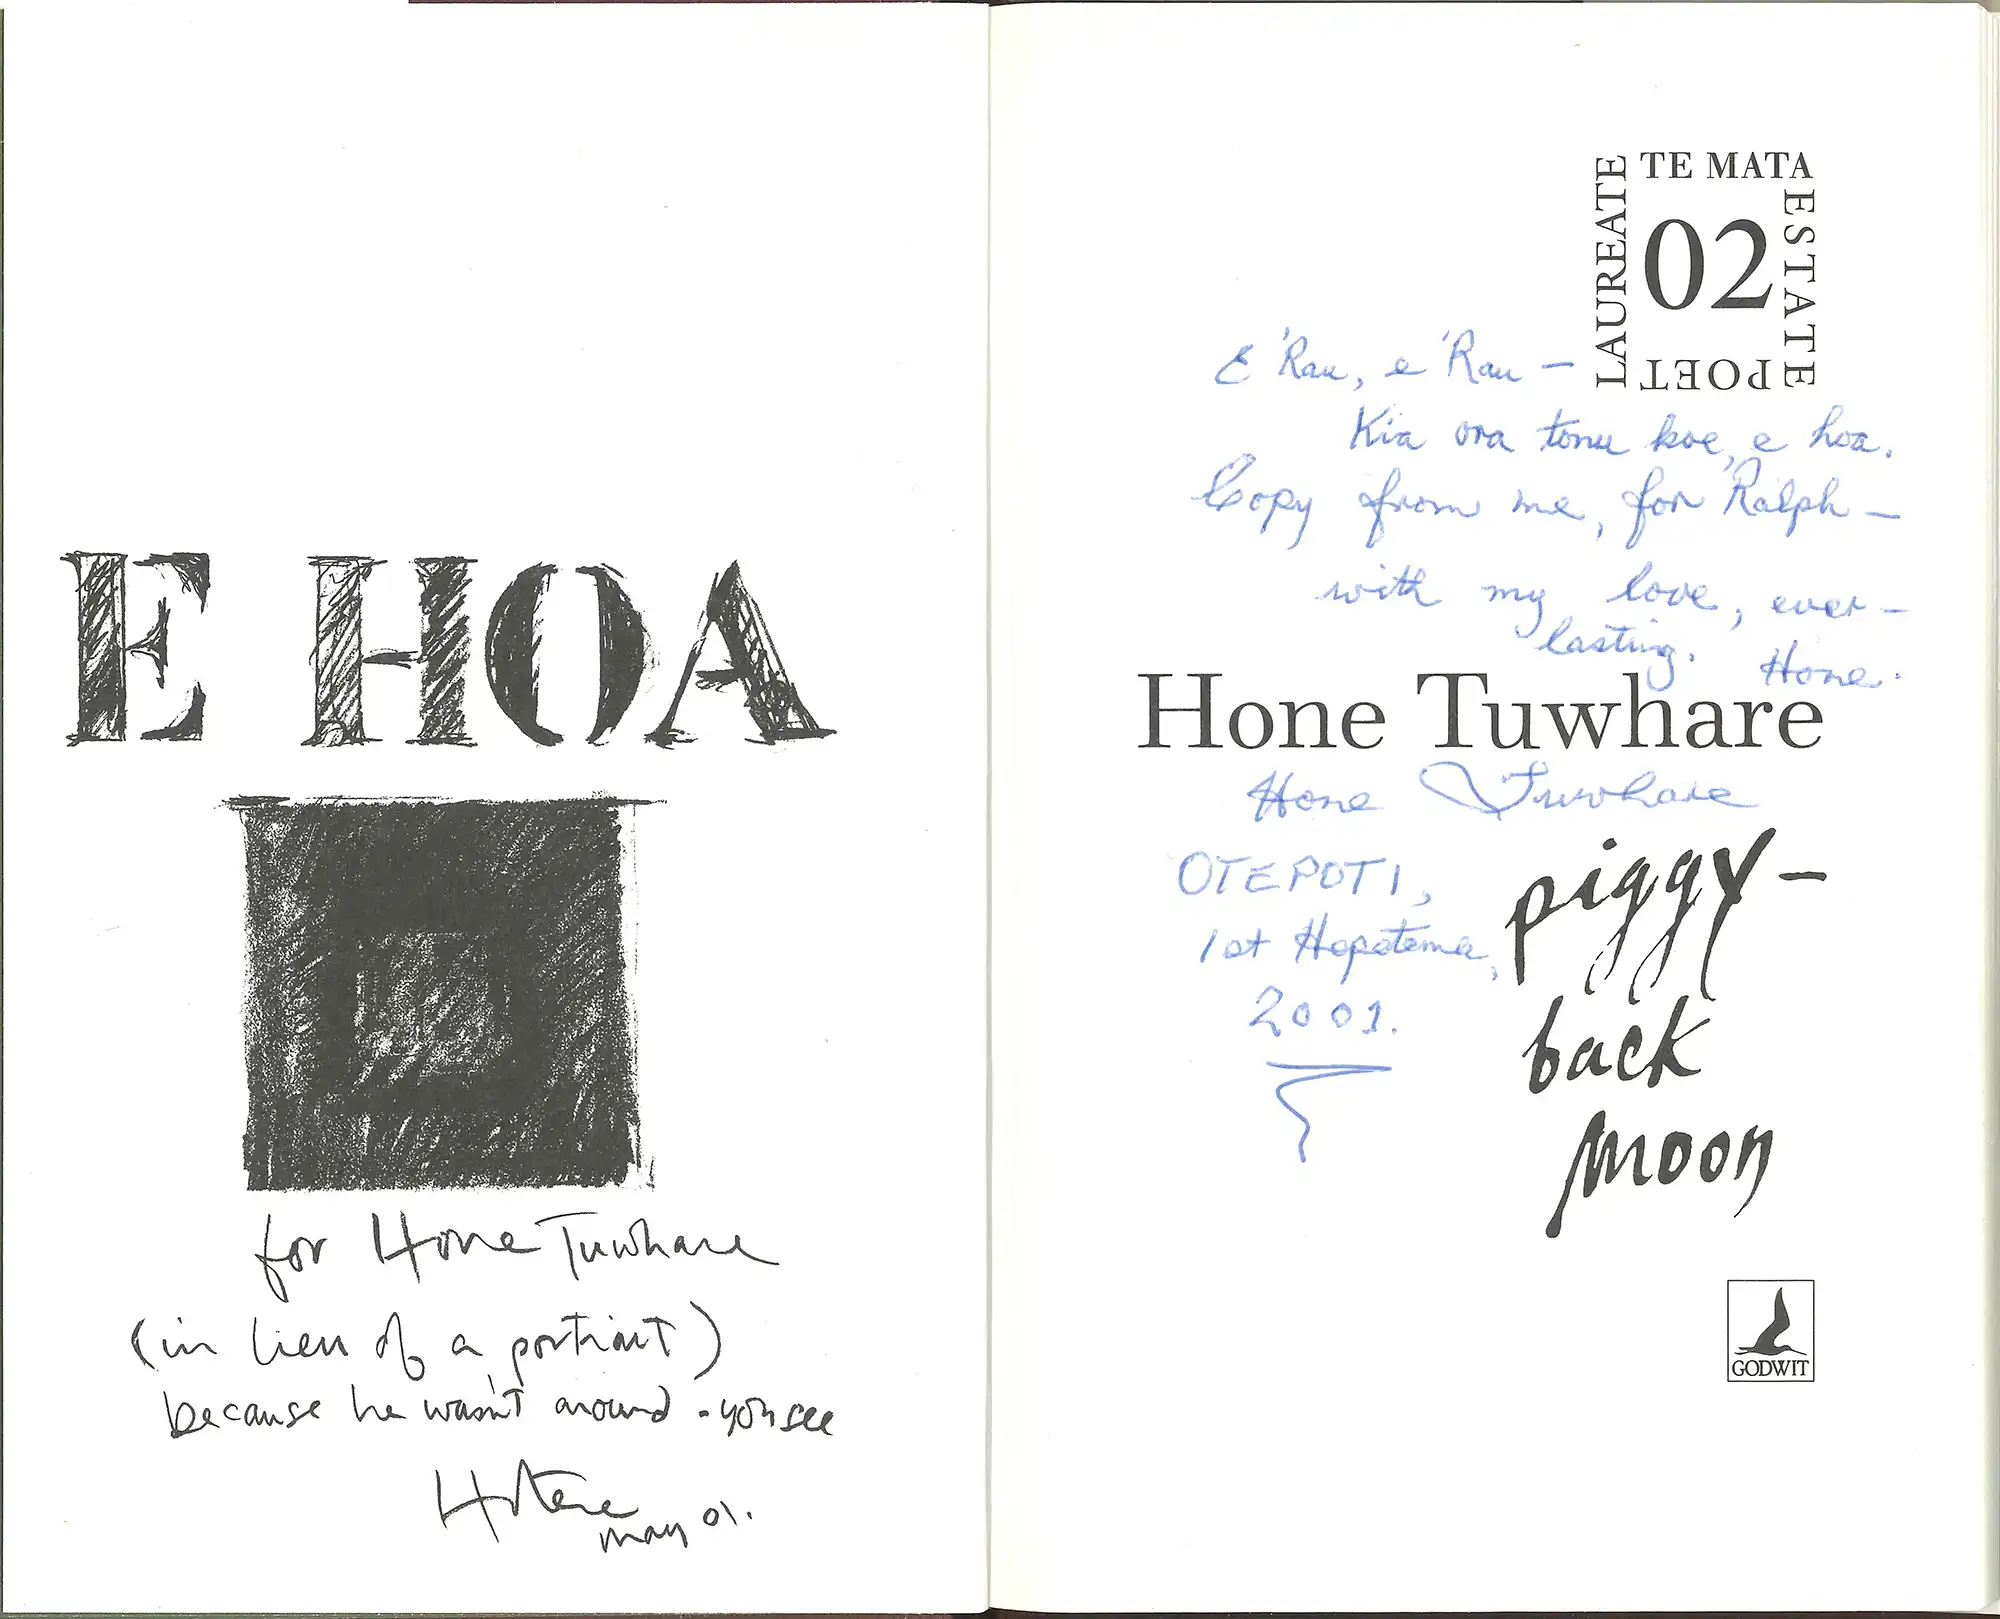 E HOA
for Hone Tuwhare
(in lieu of a portrait)
because he wasn't around - you see
Hotere
may 01.
LAUREATE
TE MATA
ESTATE
POET
02
E 'Rau, e 'Rau —
Kia ora tonu koe, e hoa.
Copy from me, for 'Ralph —
with my love, ever -
lasting. Hone.
Hone Tuwhare
Hone Tuwhare
OTEPOTI,
1st Hepetema,
2001.
piggy-
back
moon
GODWIT